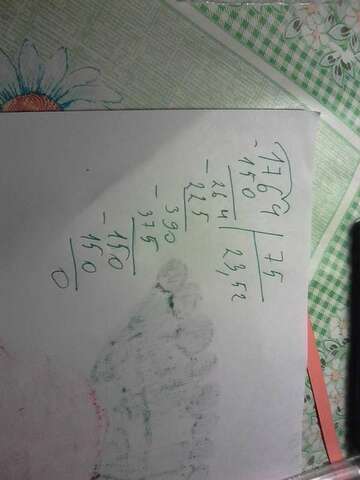 - 1764 | 75
150 | 23,52
- 264
225
- 390
375
- 150
150
0